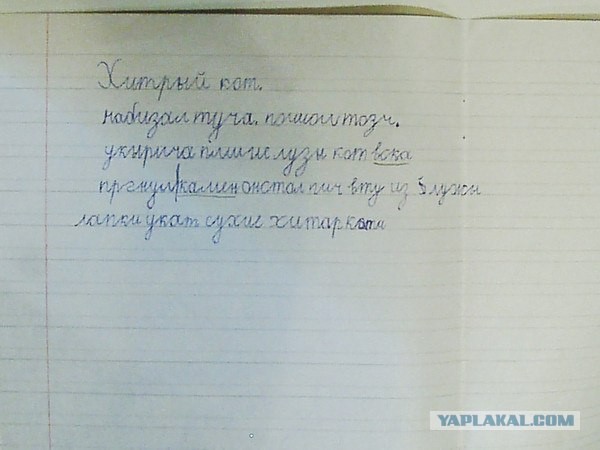 Хитрый кот.
набизал туча. пошол тозч.
укырича пли ие лузы кот вска
пргнул камен онстал пич вту из Блужи
лапки укат сухие хитар коти
YAPLAKAL.COM